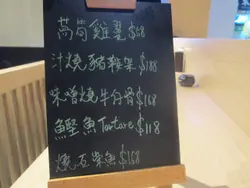 萵筍雞翼$68
汁燒豬頸 $188
味噌燒牛仔骨$168
鰹魚Tartare$118
燒 魚$168